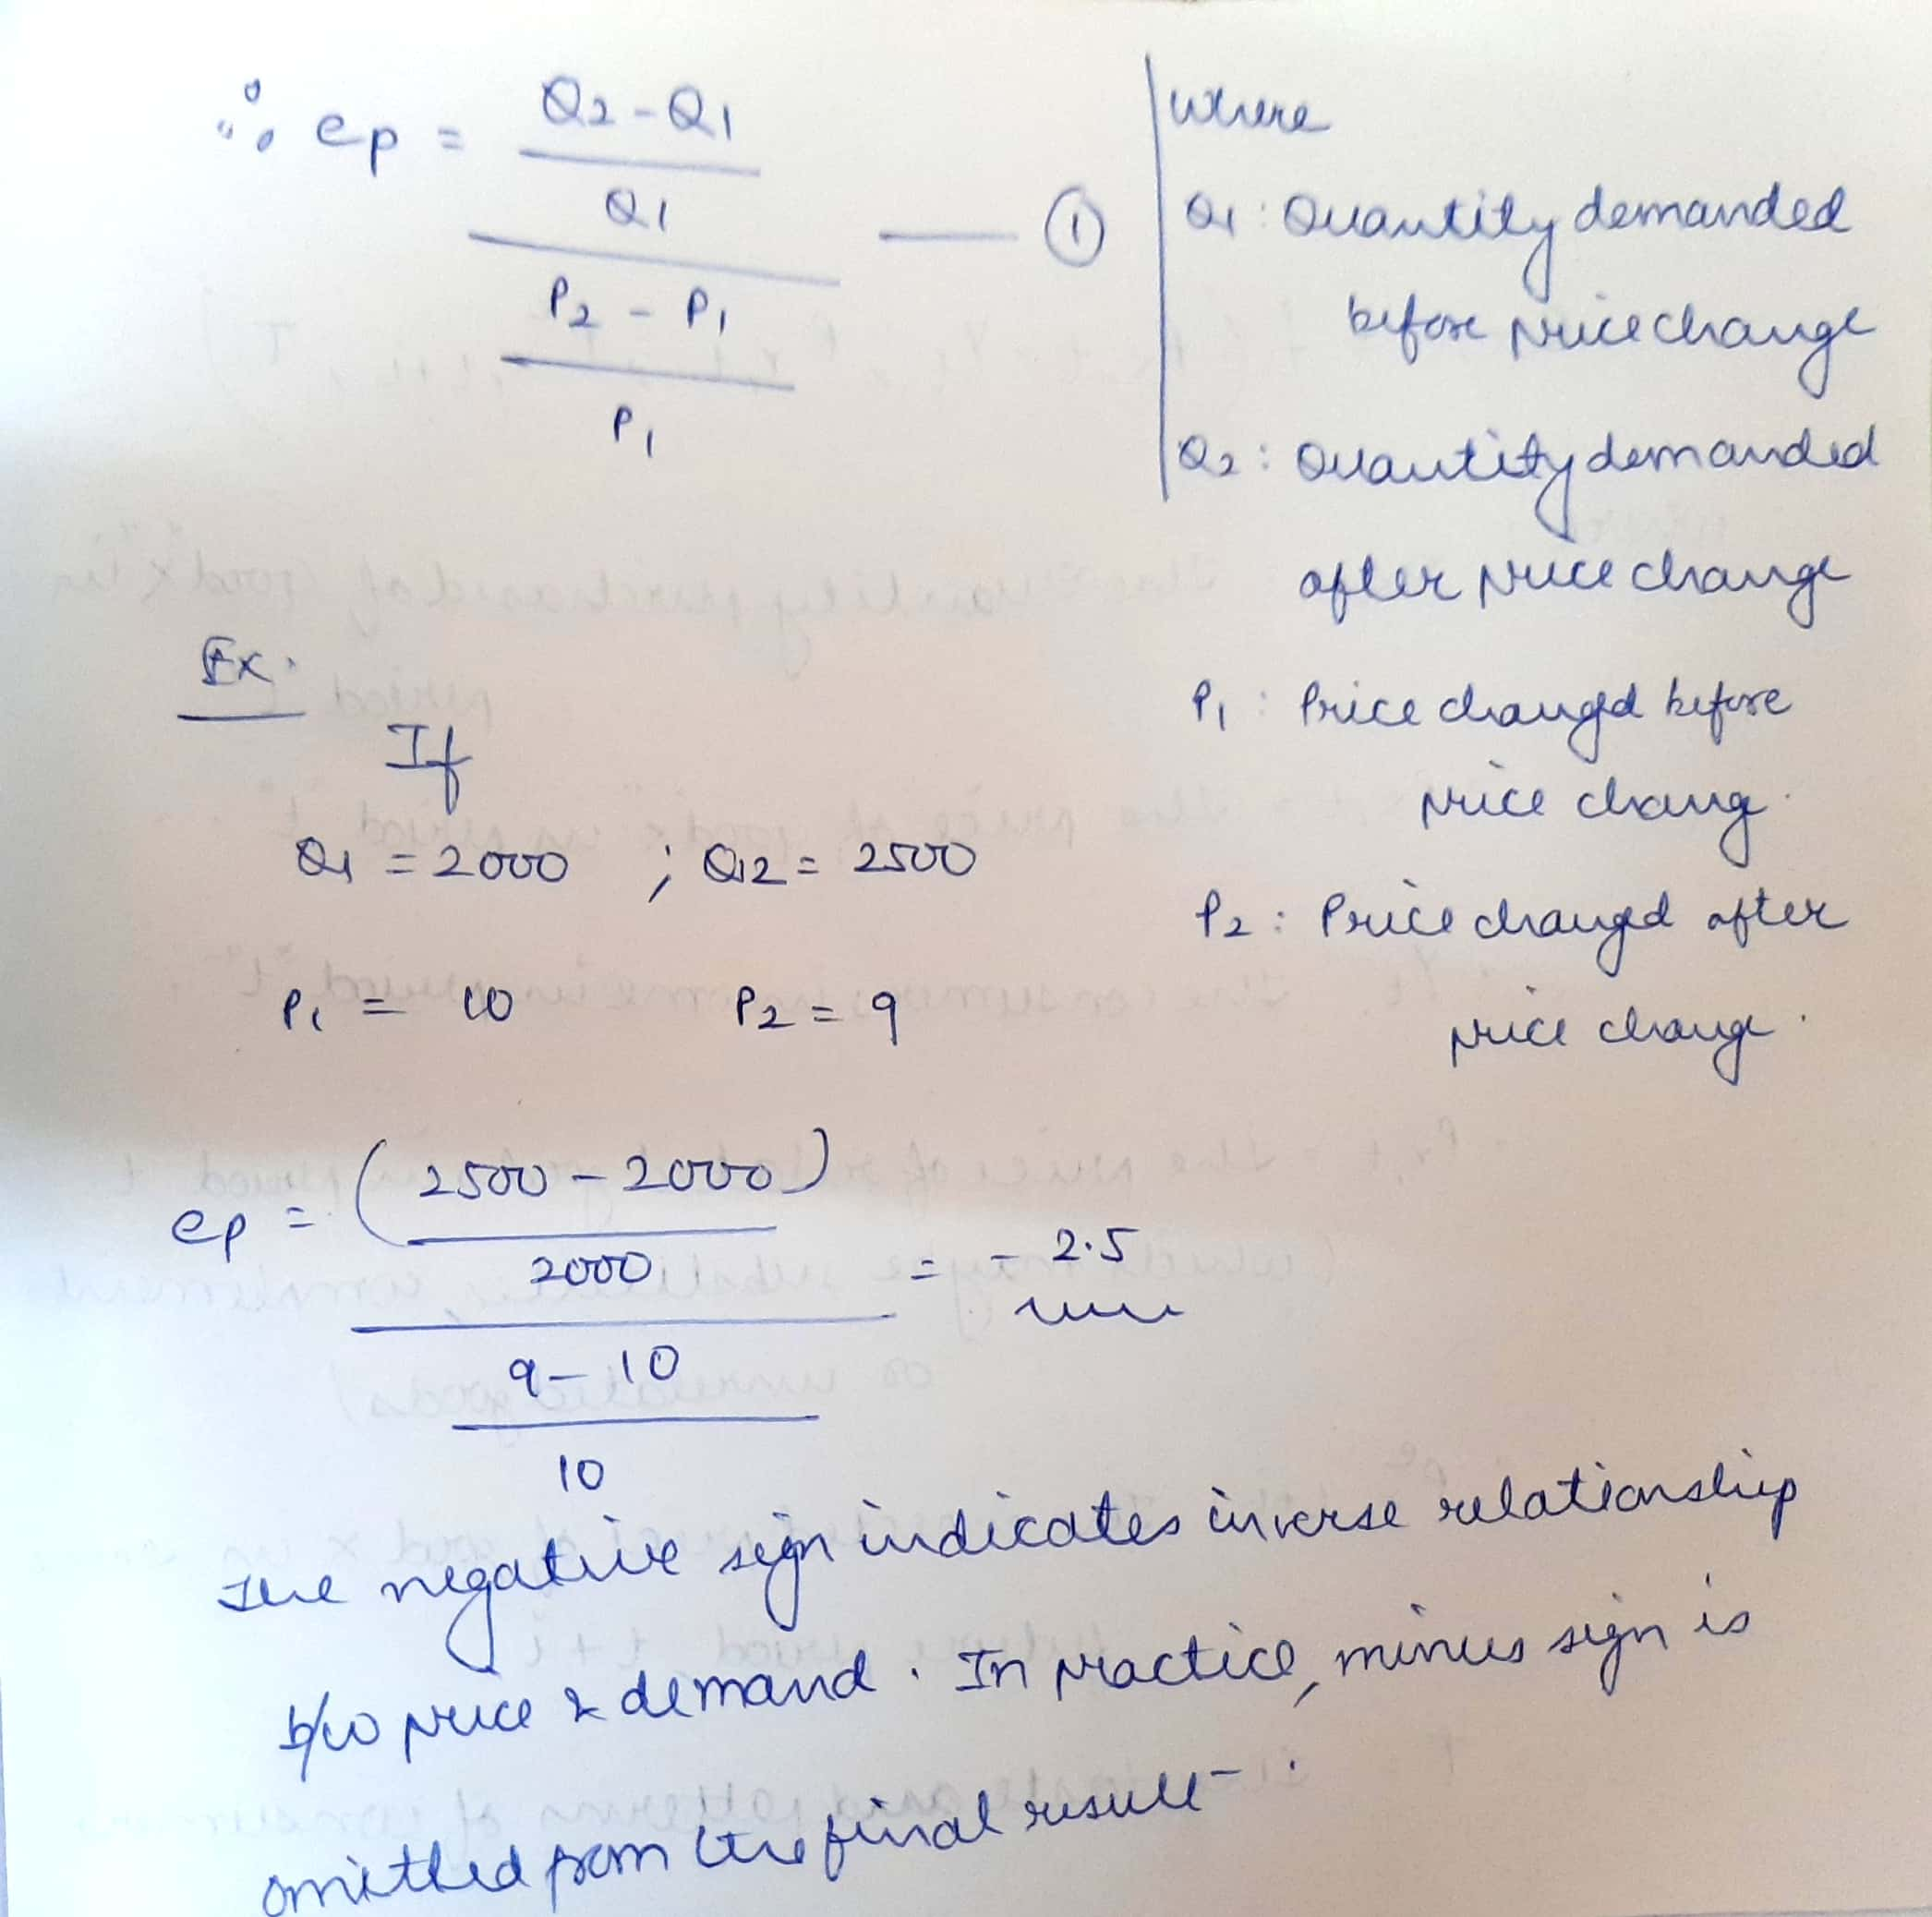 ∴ ep = Q2 - Q1
Q1
P2 - P1
P1
— ①
where
Q1 : Quantity demanded
before price change
Q2 : Quantity demanded
after price change
P1 : Price changed before
price chang.
P2 : Price changed after
price change.
Ex.
If
Q1 = 2000 ; Q2 = 2500
P1 = 10 P2 = 9
ep = (2500 - 2000)
2000
9 - 10
10
= - 2.5
The negative sign indicates inverse relationship
b/w price & demand. In practice, minus sign is
omitted from the final result.